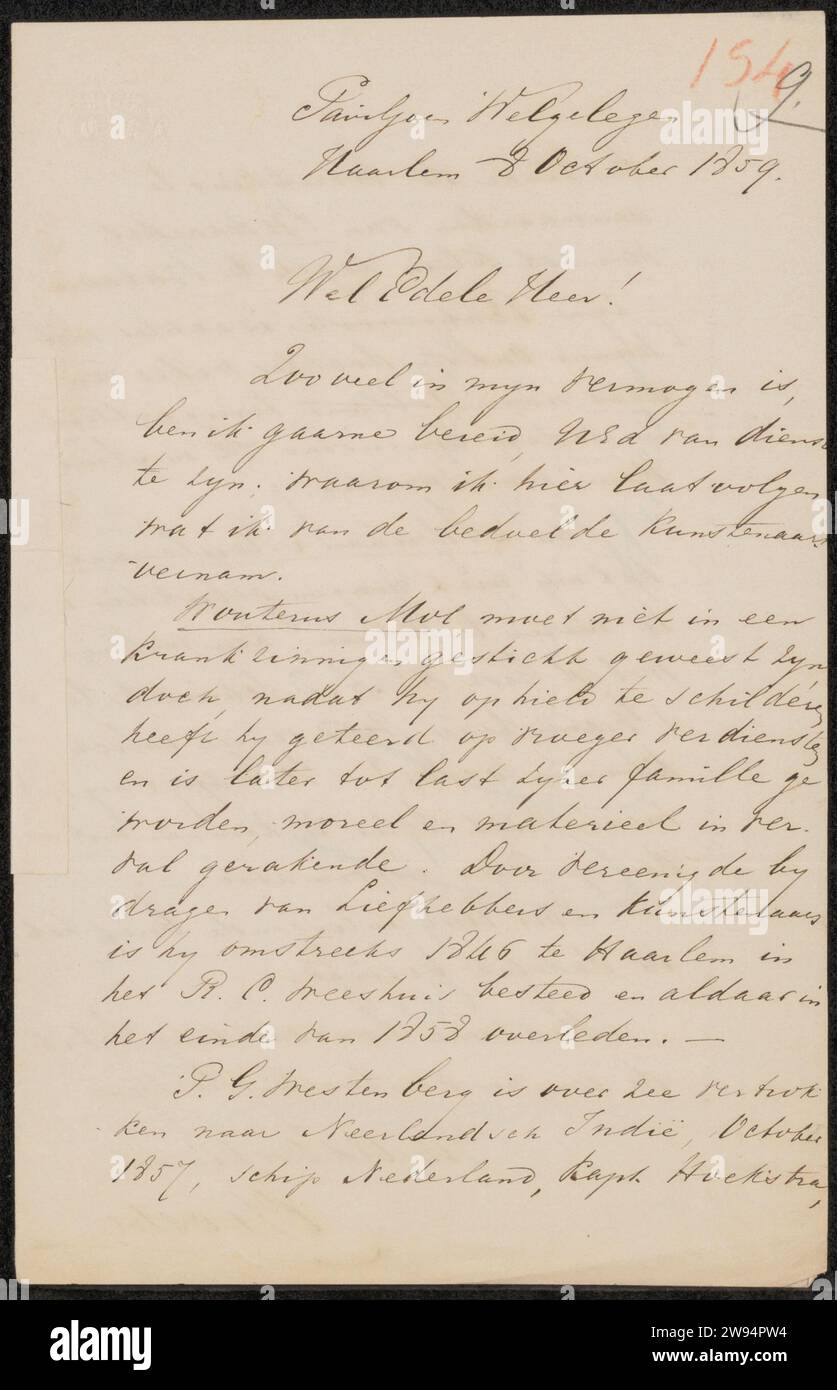 154 9.
Paviljoen Welgelegen
Haarlem 8 October 1859.
Wel Edele Heer!
Zooveel in mijn vermogen is,
ben ik gaarne bereid, UEd van dienst
te zijn; waarom ik hier laat volgen
wat ik van de bedoelde Kunstenaars
vernam.
Wouterus Mol moet niet in een
krankzinnigen gesticht geweest zijn
doch, nadat hij ophield te schilderen,
heeft hij geteerd op vroeger verdiensten
en is later tot last zijner famille ge
worden, moreel en materieel in ver-
val gerakende. Door vereenigde bij
dragen van Liefhebbers en Kunstenaars
is hij omstreeks 1846 te Haarlem in
het R. C. Weeshuis besteed en aldaar in
het einde van 1858 overleden. —
P. G. Westenberg is over zee vertrok
ken naar Neerlandsch Indië, October
1857, schip Nederland, Kapt. Hoekstra,
alamy
Image ID: 2W94PW4
www.alamy.com